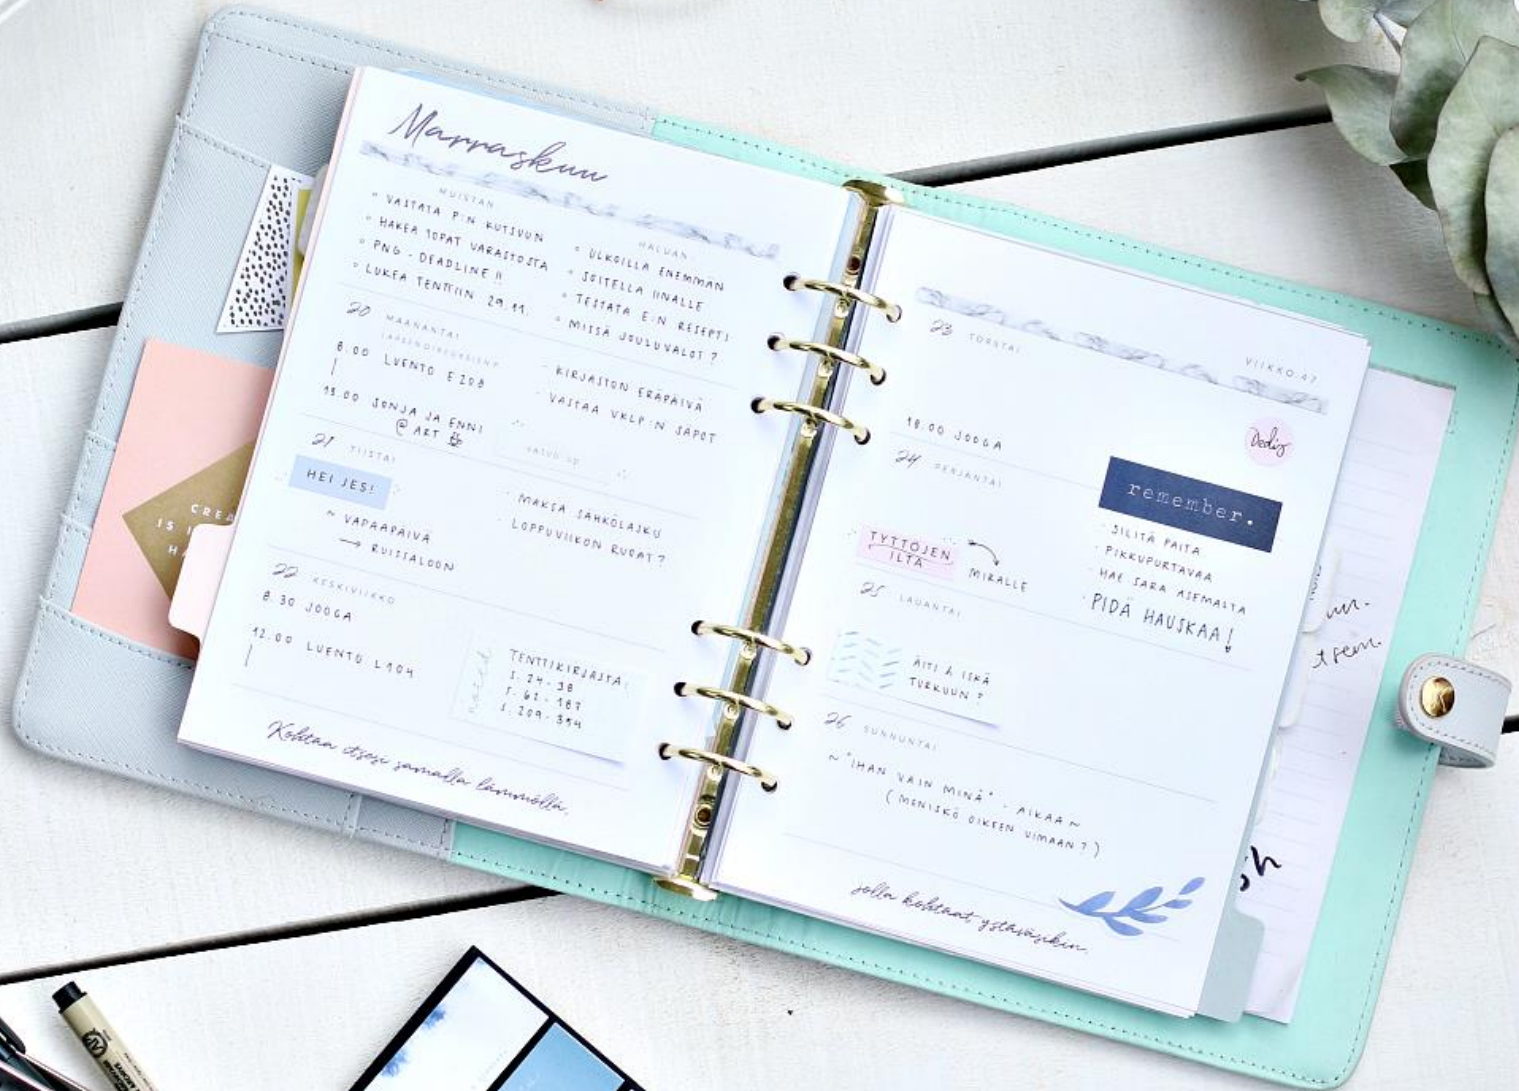 Marraskuu
MUISTAN
◦ VASTATA P:N KUTSUUN
◦ HAKEA TOPAT VARASTOSTA
◦ PNG - DEADLINE !!
◦ LUKEA TENTTIIN 29.11.
HALUAN
◦ ULKOILLA ENEMMÄN
◦ SOITELLA IINALLE
◦ TESTATA E:N RESEPTI
◦ MISSÄ JOULUVALOT ?
20 MAANANTAI
8.00 LUENTO E208
13.00 SONJA JA ENNI
@ ART
· KIRJASTON ERÄPÄIVÄ
· VASTAA VKLP:N SAPOT
21 TIISTAI
HEI JES!
~ VAPAAPÄIVÄ
→ RUISSALOON
· MAKSA SÄHKÖLASKU
· LOPPUVIIKON RUOAT?
22 KESKIVIIKKO
8.30 JOOGA
12.00 LUENTO L104
noted
TENTTIKIRJASTA:
S. 24-38
S. 62-187
S. 209-354
Kohtaa itsesi samalla lämmöllä,
VIIKKO 47
23 TORSTAI
18.00 JOOGA
Dedis
24 PERJANTAI
TYTTÖJEN
ILTA
MIRALLE
remember.
· SILITÄ PAITA
· PIKKUPURTAVAA
· HAE SARA ASEMALTA
· PIDÄ HAUSKAA!
25 LAUANTAI
ÄITI & ISKÄ
TURKUUN ?
26 SUNNUNTAI
~ "IHAN VAIN MINÄ" - AIKAA ~
( MENISKÖ OIKEEN UIMAAN ? )
jolla kohtaat ystäväsikin.